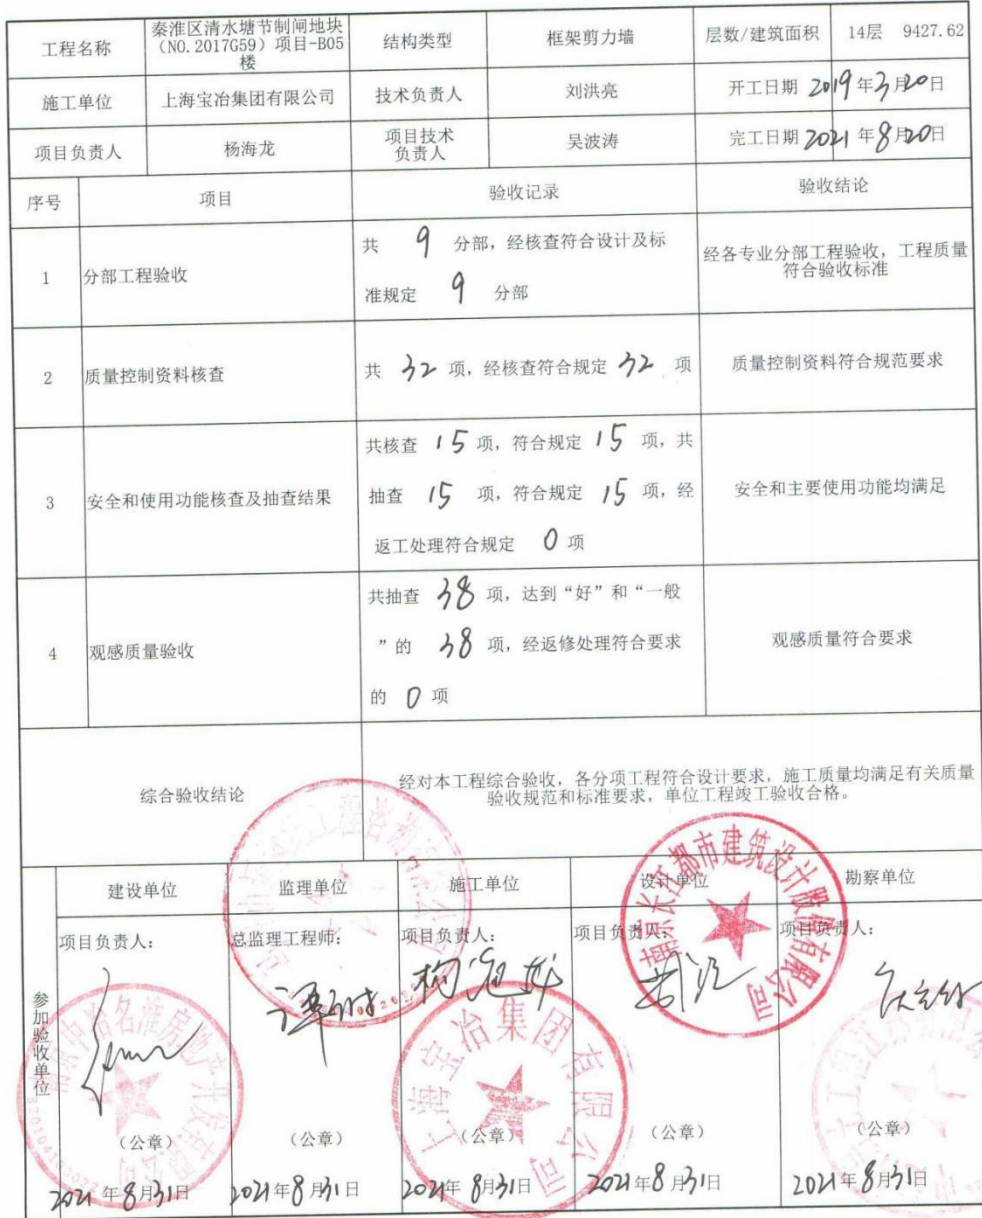 工程名称
秦淮区清水塘节制闸地块
（NO.2017G59）项目-B05
楼
结构类型
框架剪力墙
层数/建筑面积
14层 9427.62
施工单位
上海宝冶集团有限公司
技术负责人
刘洪亮
开工日期 2019年3月20日
项目负责人
杨海龙
项目技术
负责人
吴波涛
完工日期 2021年8月20日
序号
项目
验收记录
验收结论
1
分部工程验收
共 9 分部，经核查符合设计及标
准规定 9 分部
经各专业分部工程验收，工程质量
符合验收标准
2
质量控制资料核查
共 32 项，经核查符合规定 32 项
质量控制资料符合规范要求
3
安全和使用功能核查及抽查结果
共核查 15 项，符合规定 15 项，共
抽查 15 项，符合规定 15 项，经
返工处理符合规定 0 项
安全和主要使用功能均满足
4
观感质量验收
共抽查 38 项，达到“好”和“一般
”的 38 项，经返修处理符合要求
的 0 项
观感质量符合要求
综合验收结论
经对本工程综合验收，各分项工程符合设计要求，施工质量均满足有关质量
验收规范和标准要求，单位工程竣工验收合格。
参加验收单位
建设单位
监理单位
施工单位
设计单位
勘察单位
项目负责人：
总监理工程师：
项目负责人：
项目负责人：
项目负责人：
杨海龙
南京中冶名淮房地产开发有限公司
上海宝冶集团有限公司
南京长江都市建筑设计股份有限公司
（公章）
（公章）
（公章）
（公章）
（公章）
2021年8月31日
2021年8月31日
2021年8月31日
2021年8月31日
2021年8月31日